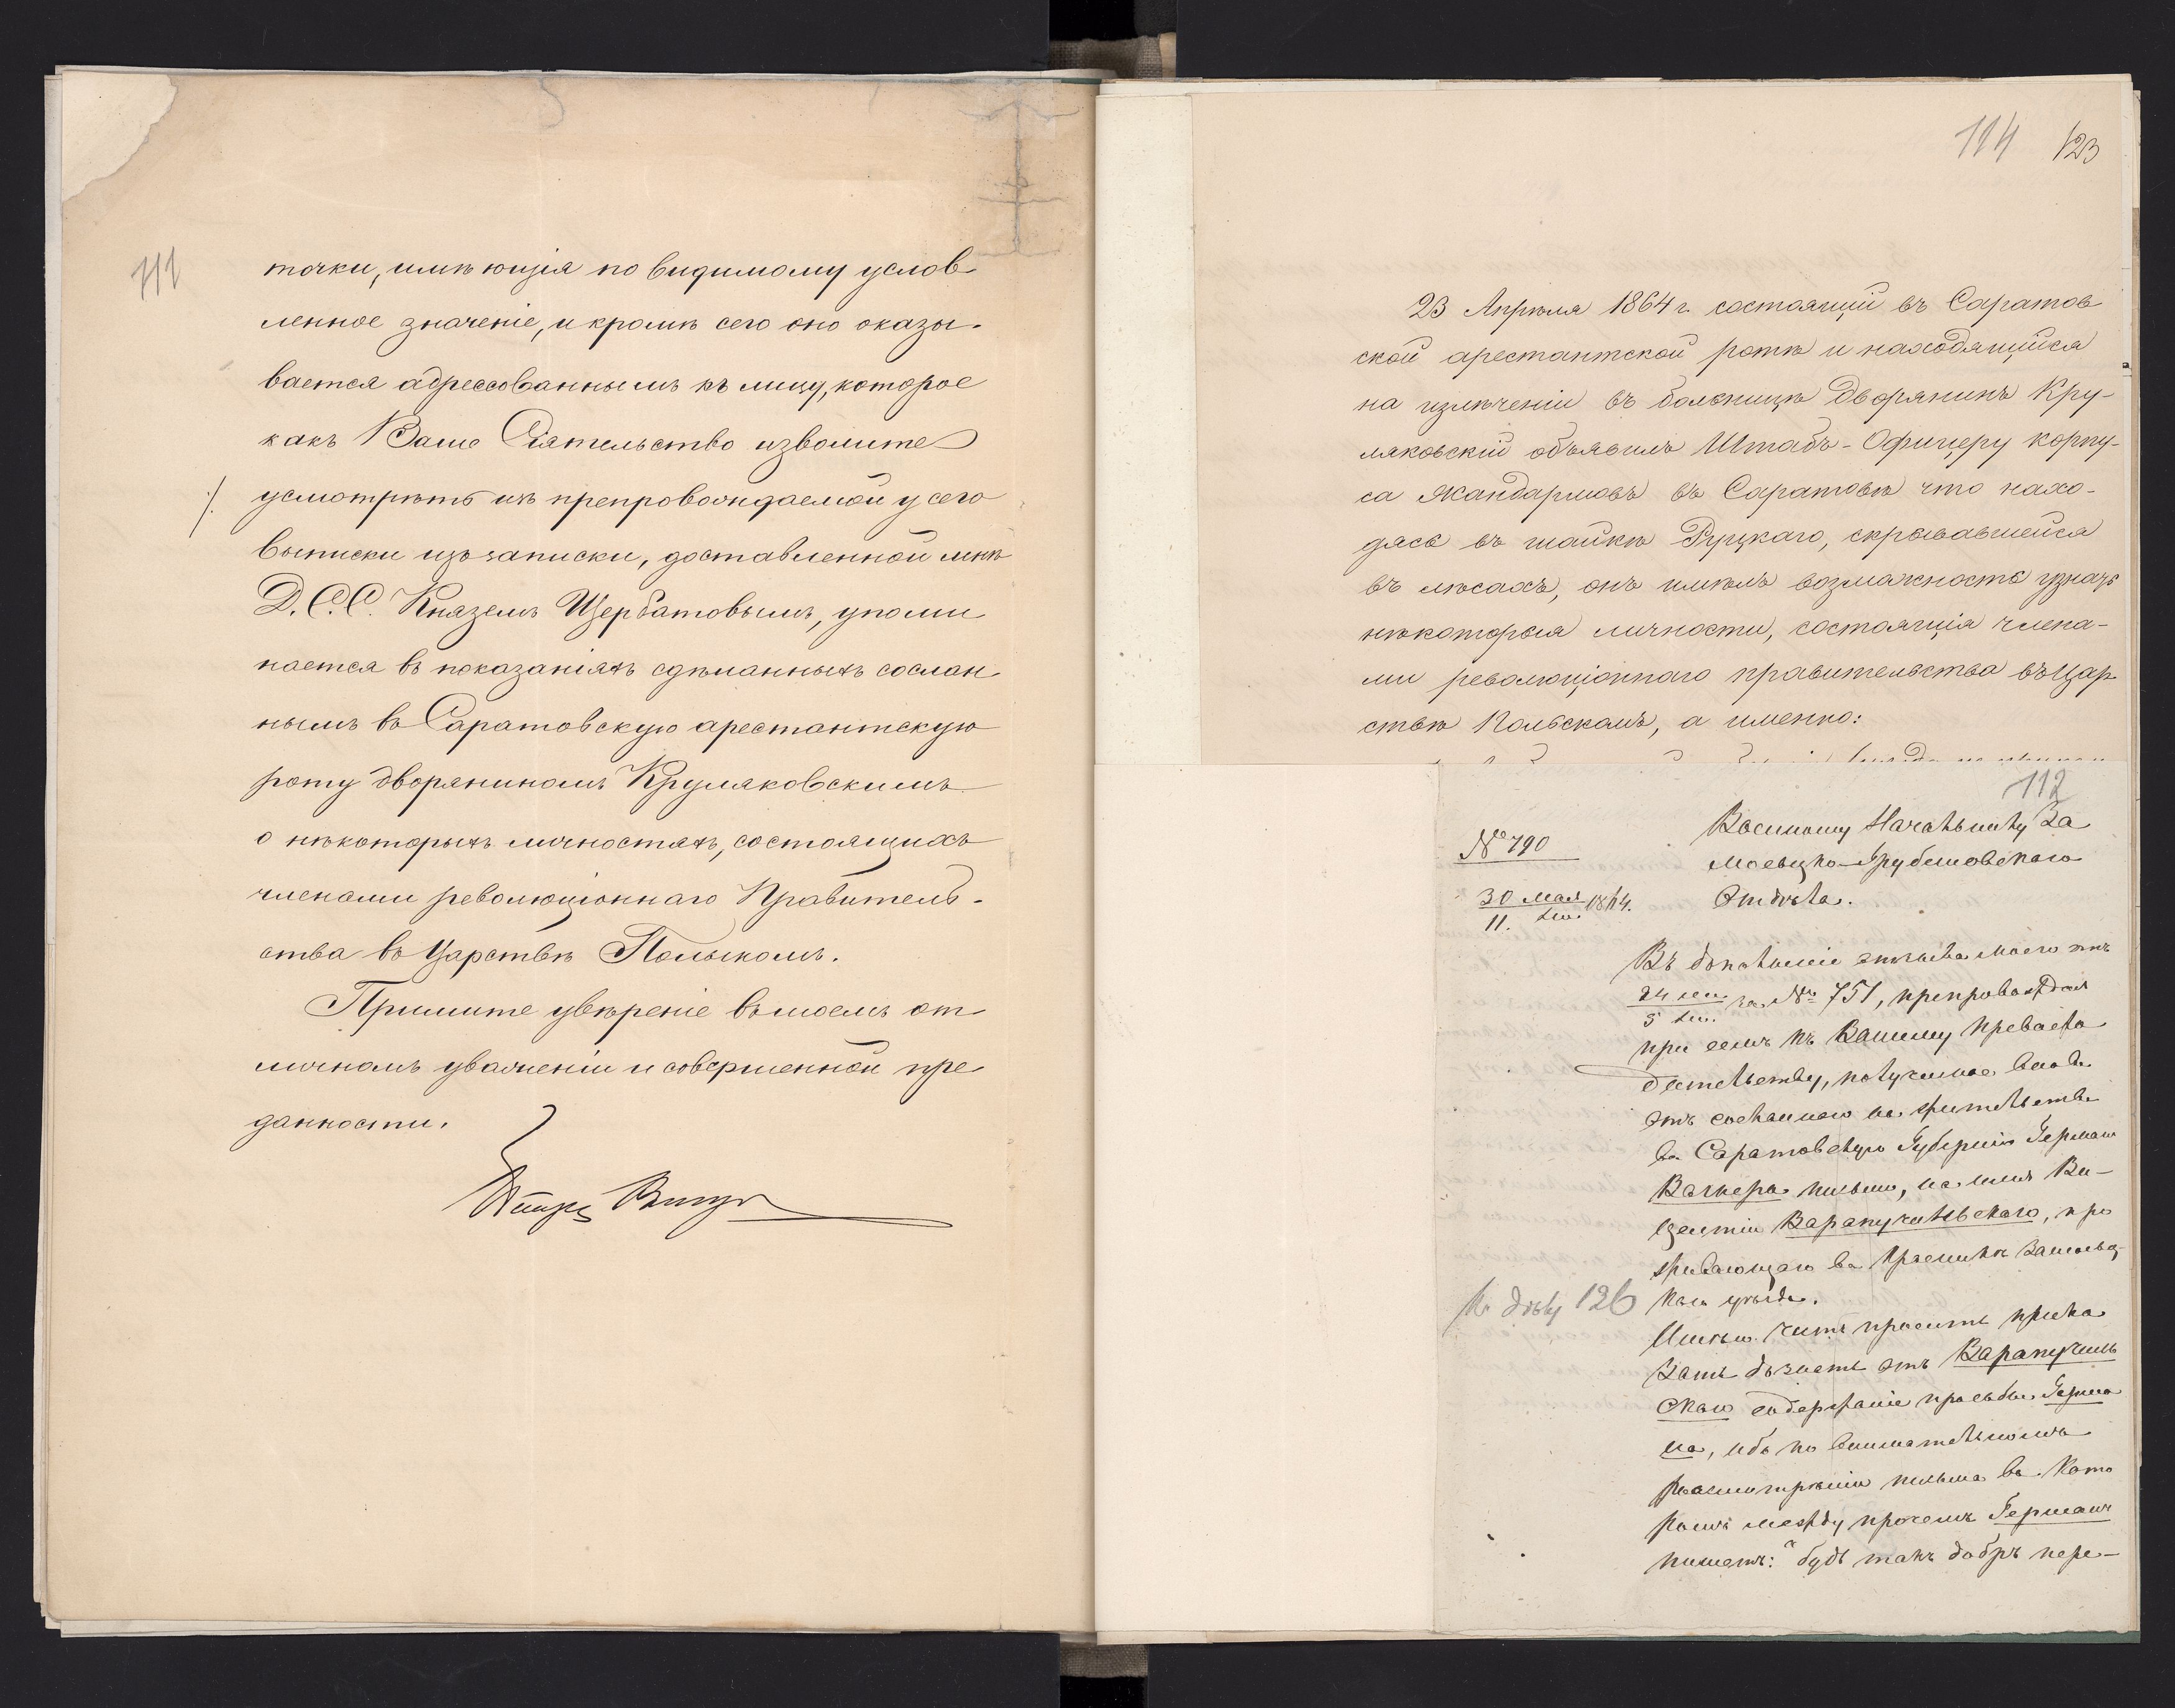 111
точки, имѣющія по видимому услов
ленное значеніе, и кромѣ сего оно оказы-
вается адрессованнымъ къ лицу, которое
какъ Ваше Сіятельство изволите
усмотрѣть изъ препровождаемой у сего
выписки изъ записки, доставленной мнѣ
Д.С.С. Княземъ Щербатовымъ, упоми
нается въ показаніяхъ сдѣланныхъ сослан
нымъ въ Саратовскую арестантскую
роту дворяниномъ Круляковскимъ
о нѣкоторыхъ личностяхъ, состоящихъ
членами революціоннаго Правитель-
ства въ Царствѣ Польскомъ.
Примите увѣреніе въ моемъ от
личномъ уваженіи и совершенной пре
данности.
114 123
23 Апрѣля 1864 г. состоящій въ Саратов
ской арестантской ротѣ и находящійся
на излѣченіи въ больницѣ Дворянинъ Кру-
ляковскій объявилъ Штабъ-Офицеру корпу-
са Жандармовъ въ Саратовѣ что нахо-
дясь въ шайкѣ Руцкаго, скрывавшейся
въ лѣсахъ, онъ имѣлъ возможность узнать
нѣкоторыя личности, состоящія члена-
ми революціоннаго правительства въ Цар
ствѣ Польскомъ, а именно:
112
№ 790
30 мая 1864.
11.
Военному Начальнику За
мосьцко-Грубешовскаго
Отдѣла.
Въ дополненіе отзыва моего отъ
24 мая
5 за № 751, препровождая
при семъ къ Вашему Превосхо
дительству, полученное вновь
отъ сосланнаго на жительство
въ Саратовскую Губернію Германа
Вагнера письмо, на имя Ви-
центія Карапучинскаго, про
живающаго въ Красникѣ Замосьц-
каго уѣзда.
Къ дѣлу 126
Имѣю честь просить прика
зать дознать отъ Карапучин
скаго содержаніе просьбы Герма
на, ибо по внимательномъ
разсмотрѣніи письма въ кото
ромъ между прочемъ Германъ
пишетъ: "будь такъ добръ пере-